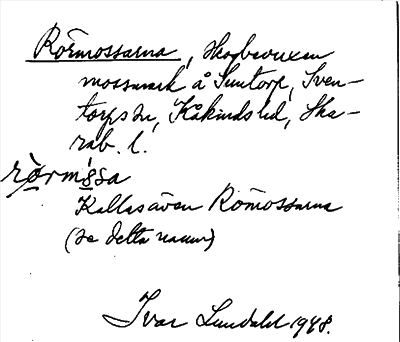 Rörmossarna, skogbevuxen
mossmark å Suntorp, Sven-
torps sn, Kåkinds hd, Ska-
rab. l.
rö̀rmósa
Kallas även Römossarna
(se detta namn)
Ivar Lundahl 1948.